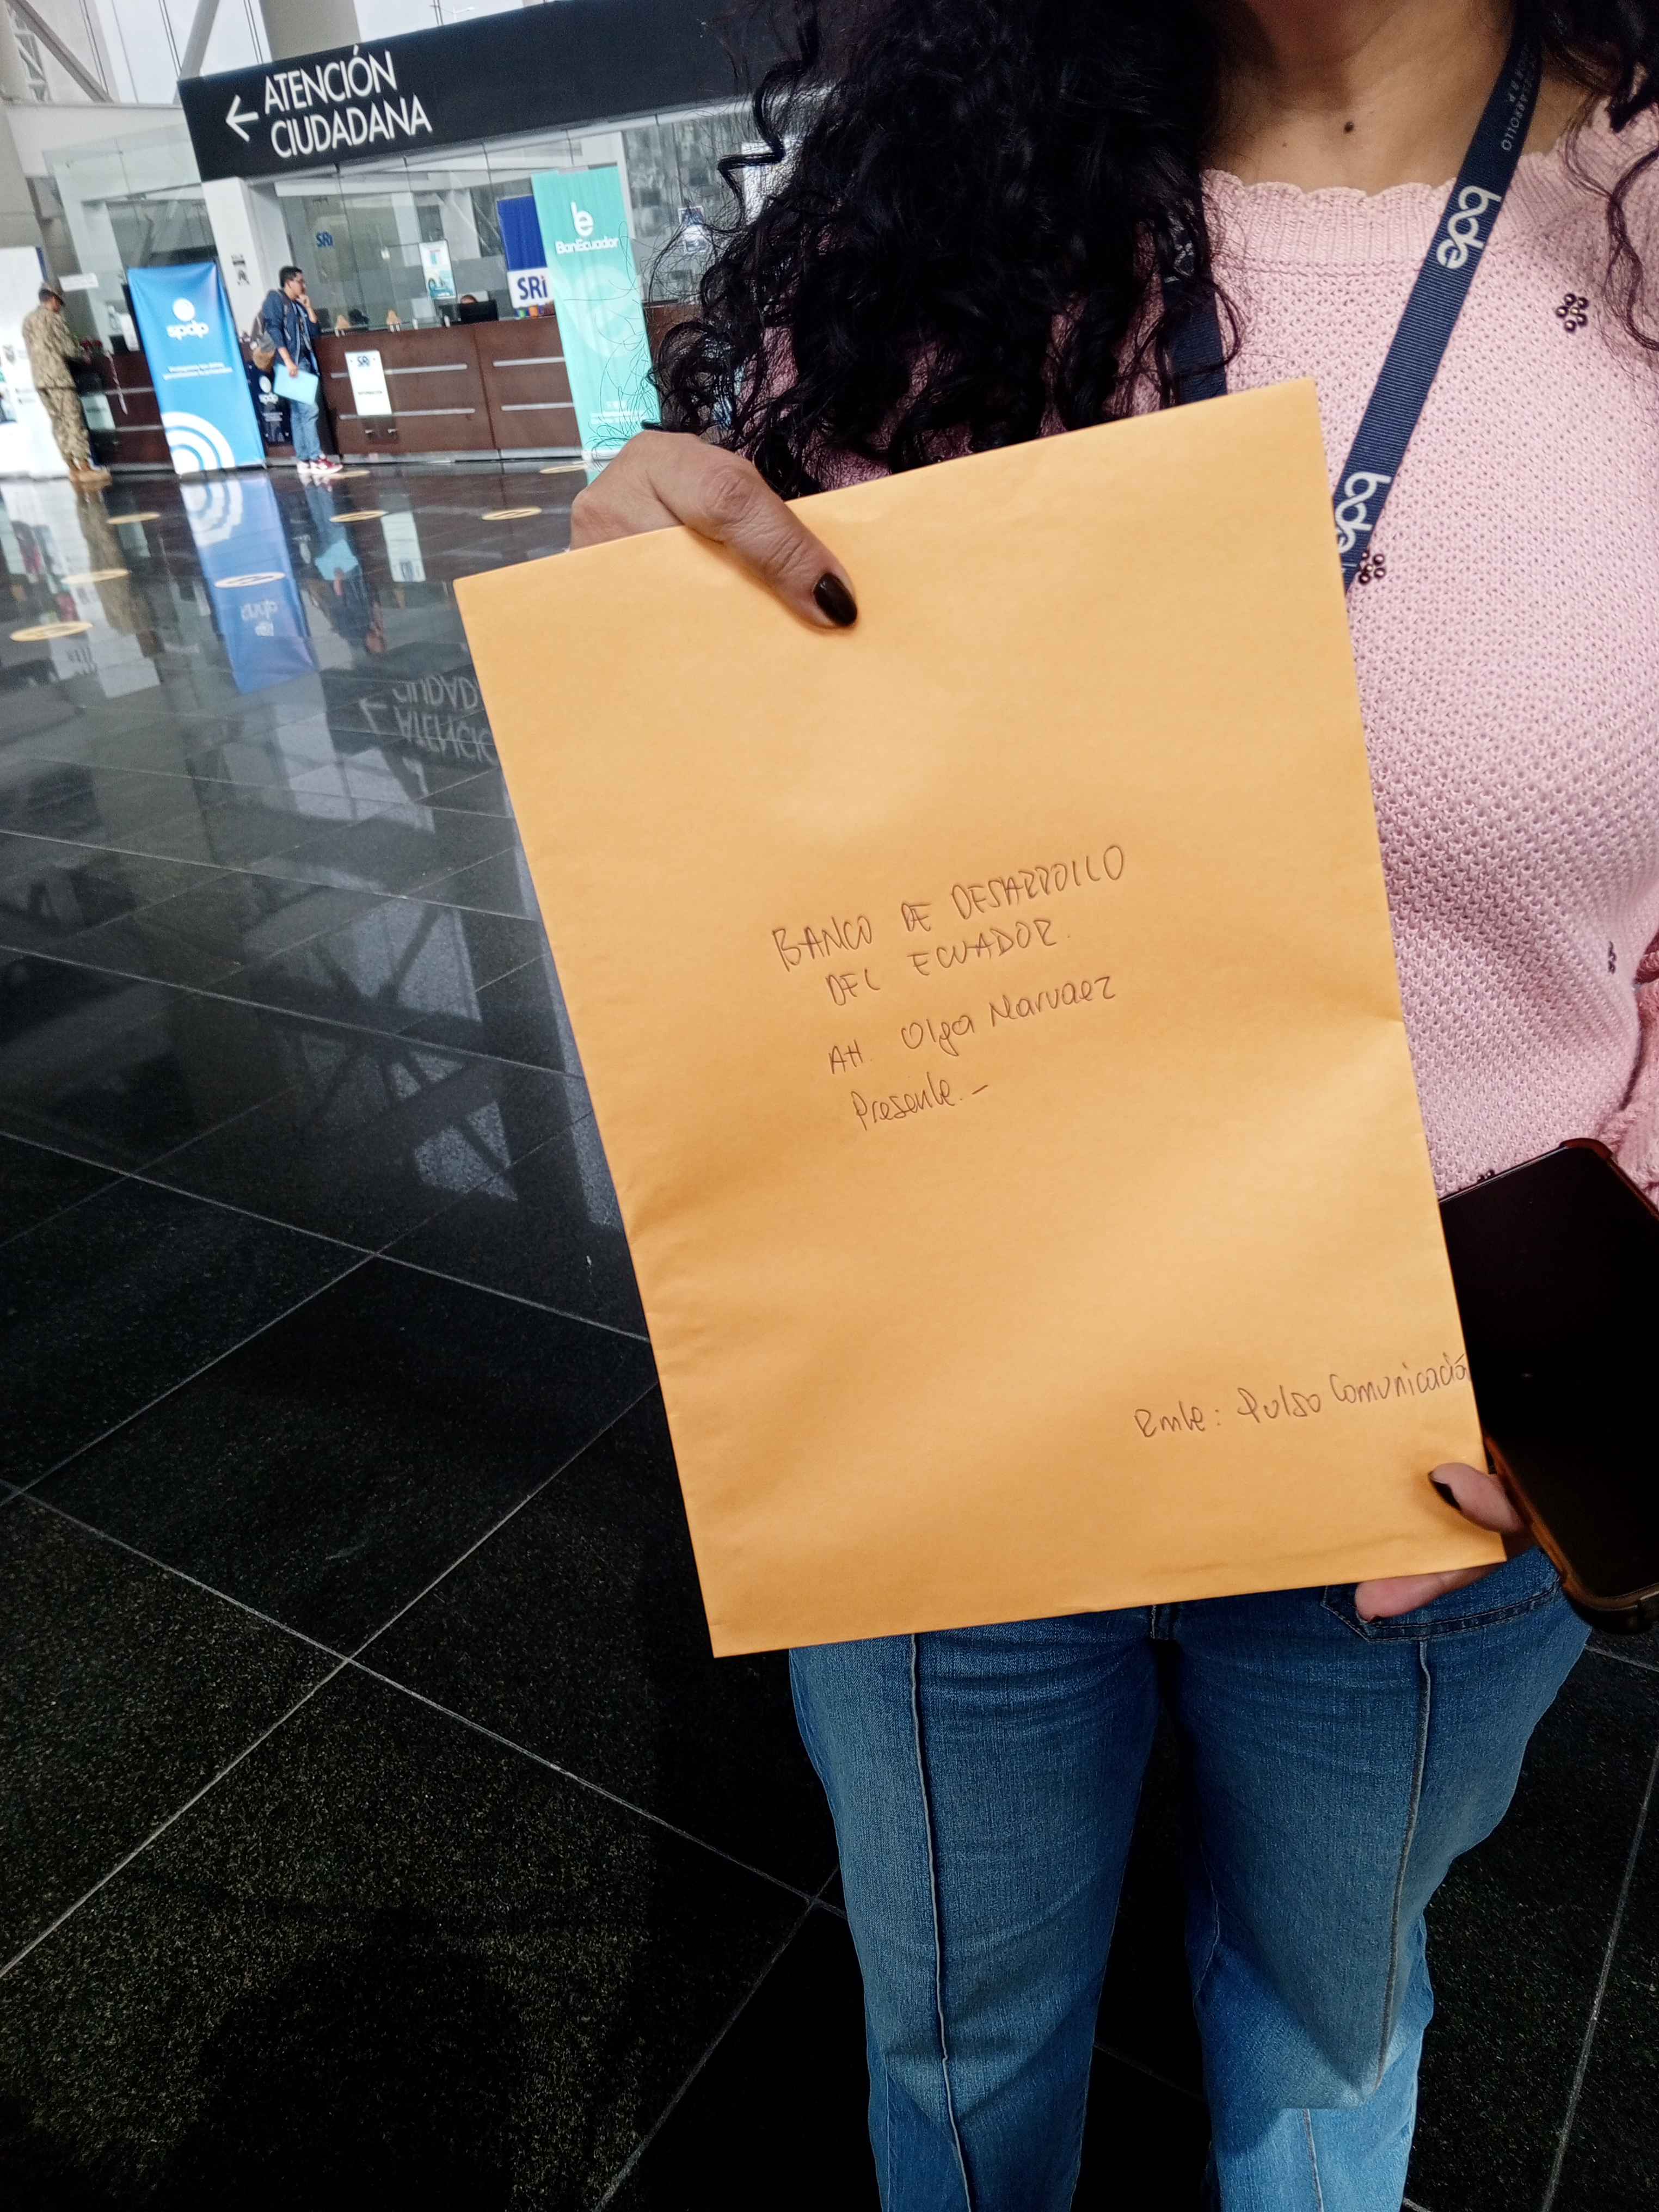 ← ATENCIÓN
CIUDADANA
SRi
BanEcuador
SRi
spdp
SRi
bde
bde
BANCO DE DESARROLLO
DEL ECUADOR.
Att. Olga Narvaez
Presente. –
Rmte: Pulso Comunicació